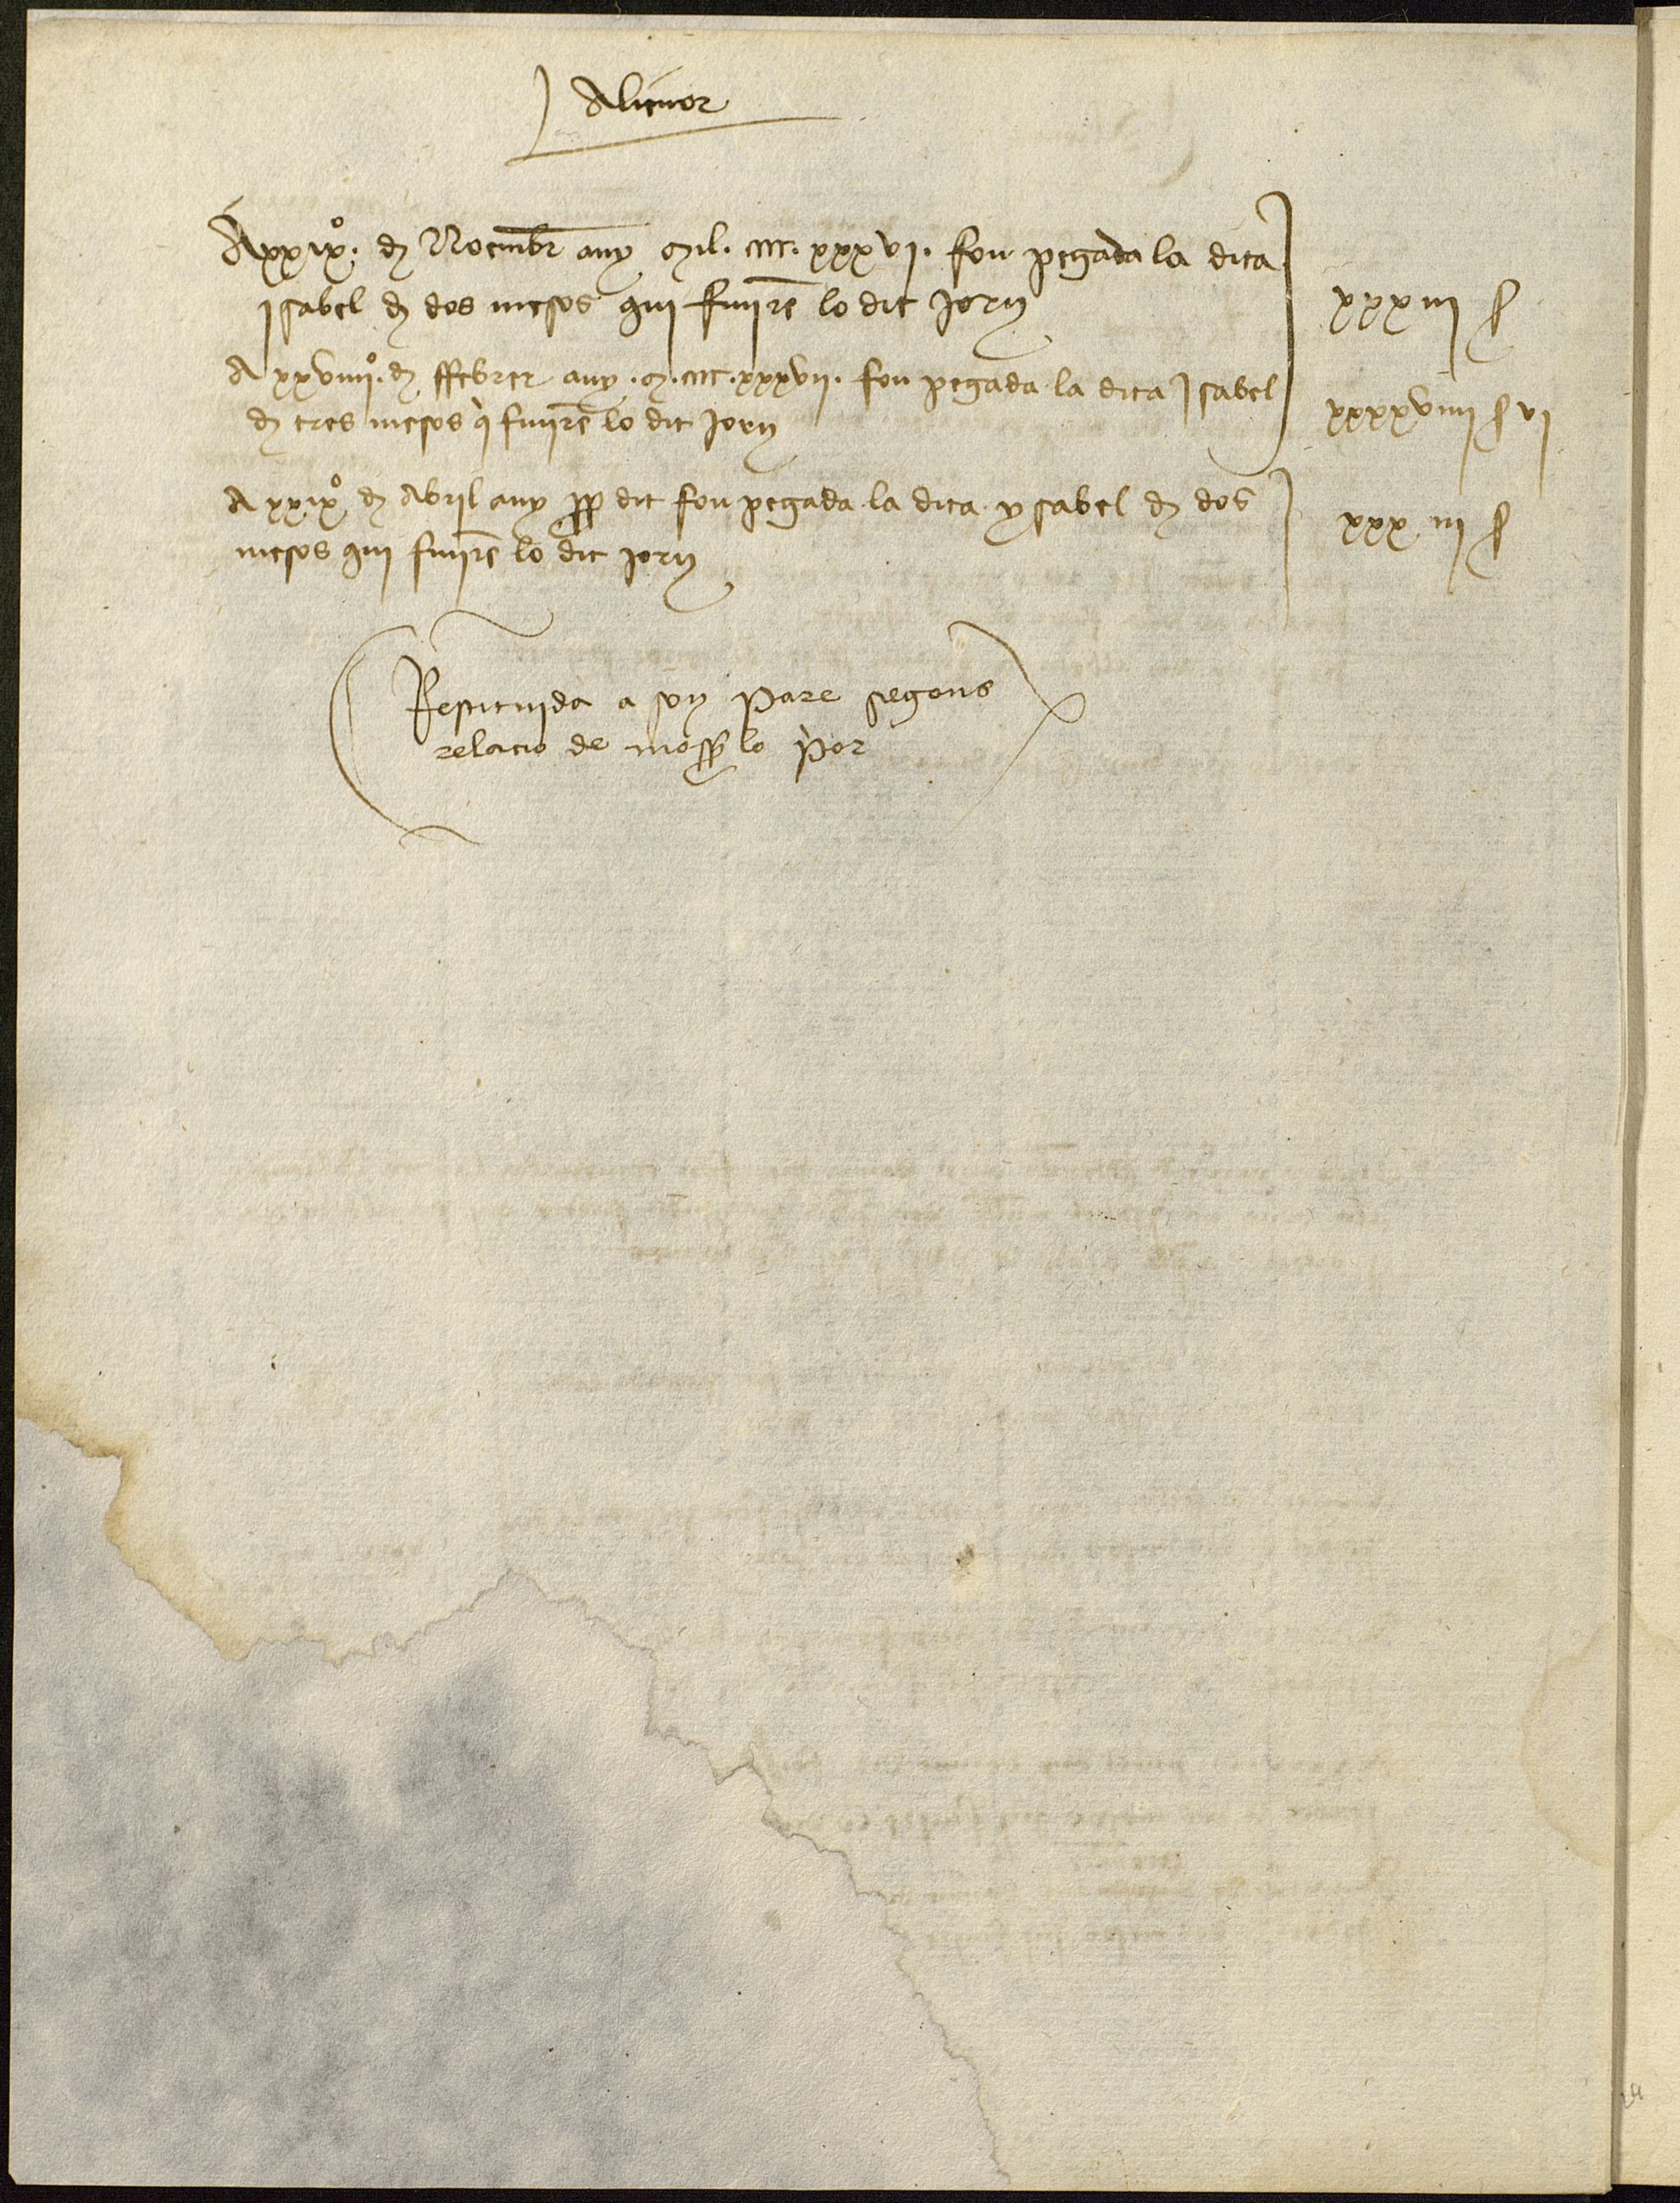 Alienor
A xxix.º de Noembre any Mil. cccc. xxxvi. fon pagada la dita
Isabel de dos mesos qui finiren lo dit Jorn
xxxiii ss
A xxviiii.º de ffebrer any .M. cccc. xxxvii. fon pagada la dita Isabel
de tres mesos q finiren lo dit Jorn
xxxxviiii ss vi
A xxix.º de Abril any pp dit fon pagada la dita Ysabel de dos
mesos qui finiren lo dit jorn
xxxiii ss
Restituida a son Pare segons
relacio de mossen lo Prior